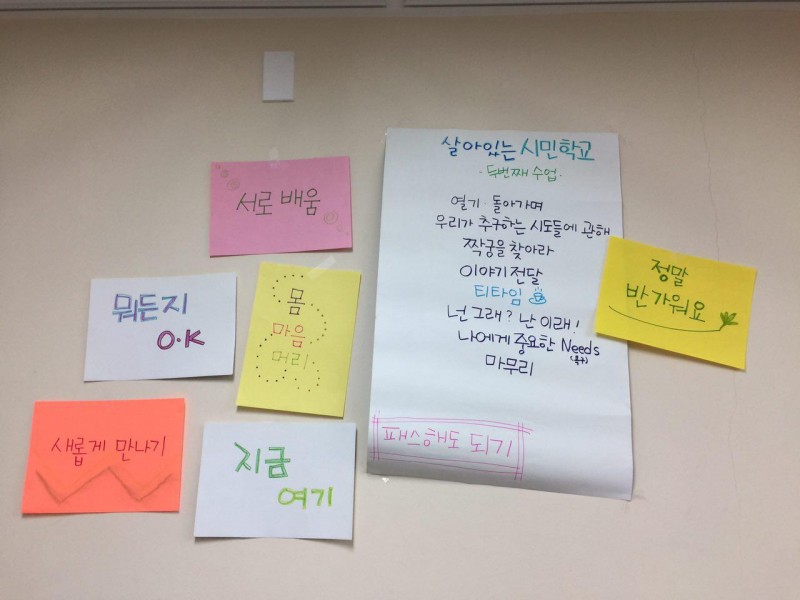 살아있는 시민학교
· 두번째 수업 ·
열기 · 돌아가며
우리가 추구하는 시도들에 관해
짝궁을 찾아라
이야기 전달
티타임
넌 그래? 난 이래!
나에게 중요한 Needs
(욕구)
마무리
패스해도 되기
서로 배움
뭐든지
O.K
몸
마음
머리
새롭게 만나기
지금
여기
정말
반가워요